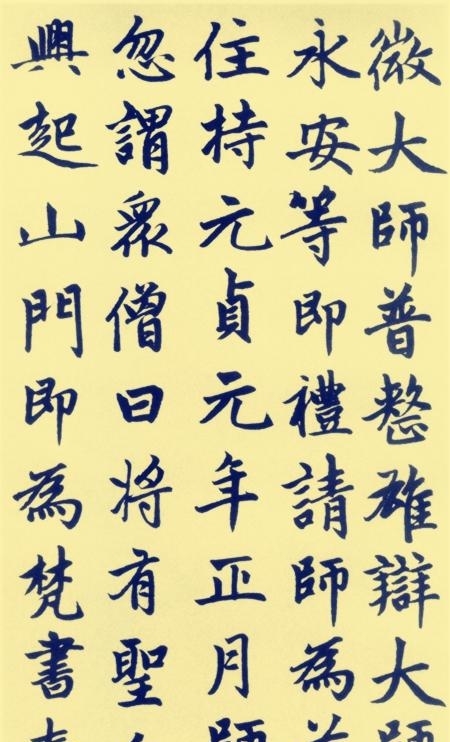 微大師普整雄辯大師
永安等即禮請師為
住持元貞元年正月師
忽謂眾僧曰將有聖
興起山門即為梵書